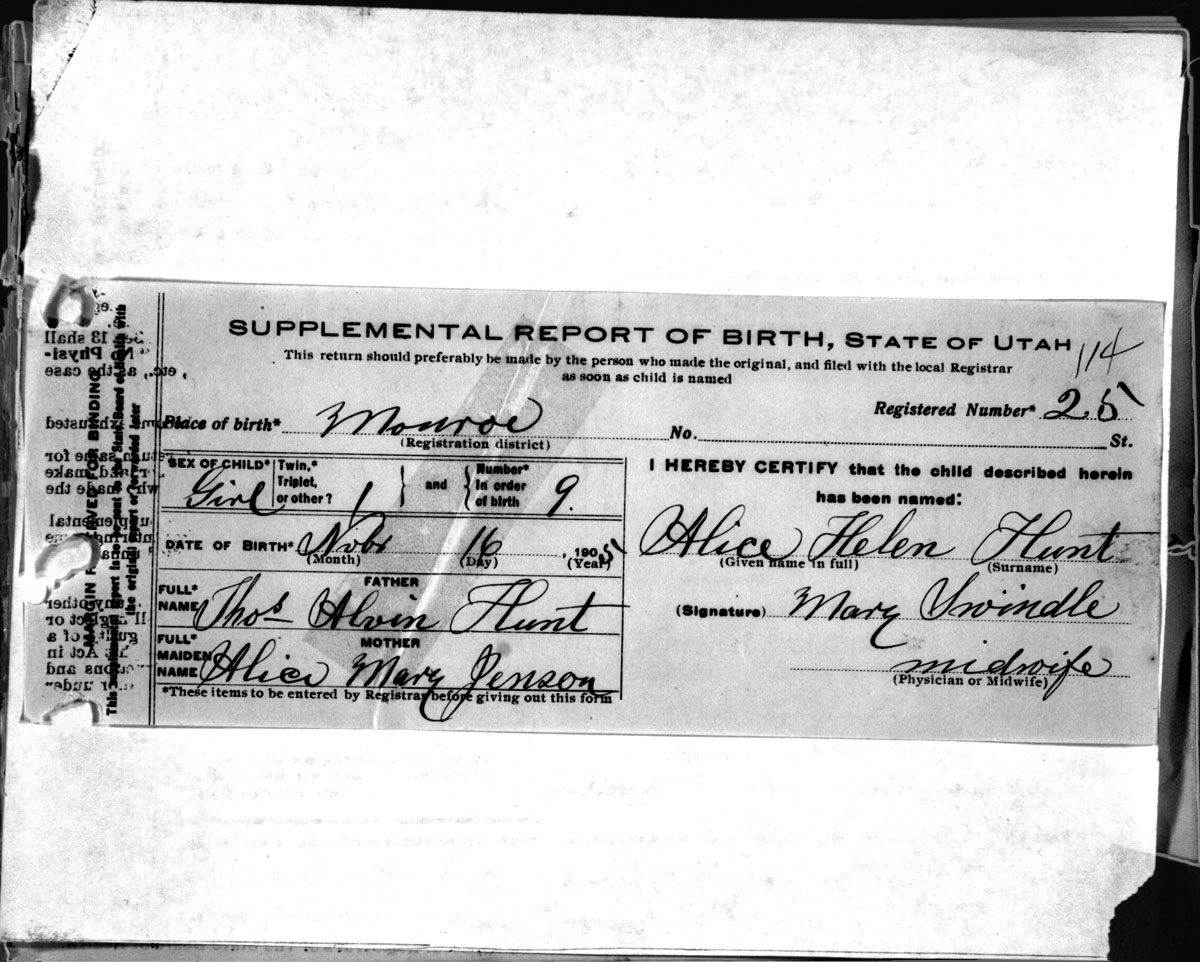 SUPPLEMENTAL REPORT OF BIRTH, STATE OF UTAH
114
This return should preferably be made by the person who made the original, and filed with the local Registrar
as soon as child is named
Registered Number* 25
Place of birth* Monroe No. St.
(Registration district)
SEX OF CHILD* Girl
Twin,* Triplet, or other? 1
and
Number* in order of birth 9.
DATE OF BIRTH* Nobr 16, 1905
(Month) (Day) (Year)
FATHER
FULL* NAME Thos Alvin Hunt
MOTHER
FULL* MAIDEN NAME Alice Mary Jenson
*These items to be entered by Registrar before giving out this form
I HEREBY CERTIFY that the child described herein
has been named:
Alice Helen Hunt
(Given name in full) (Surname)
(Signature) Mary Swindle
midwife
(Physician or Midwife)
MARGIN RESERVED FOR BINDING
This supplemental report is to be sent to the State Board of Health with
the original report or forwarded later